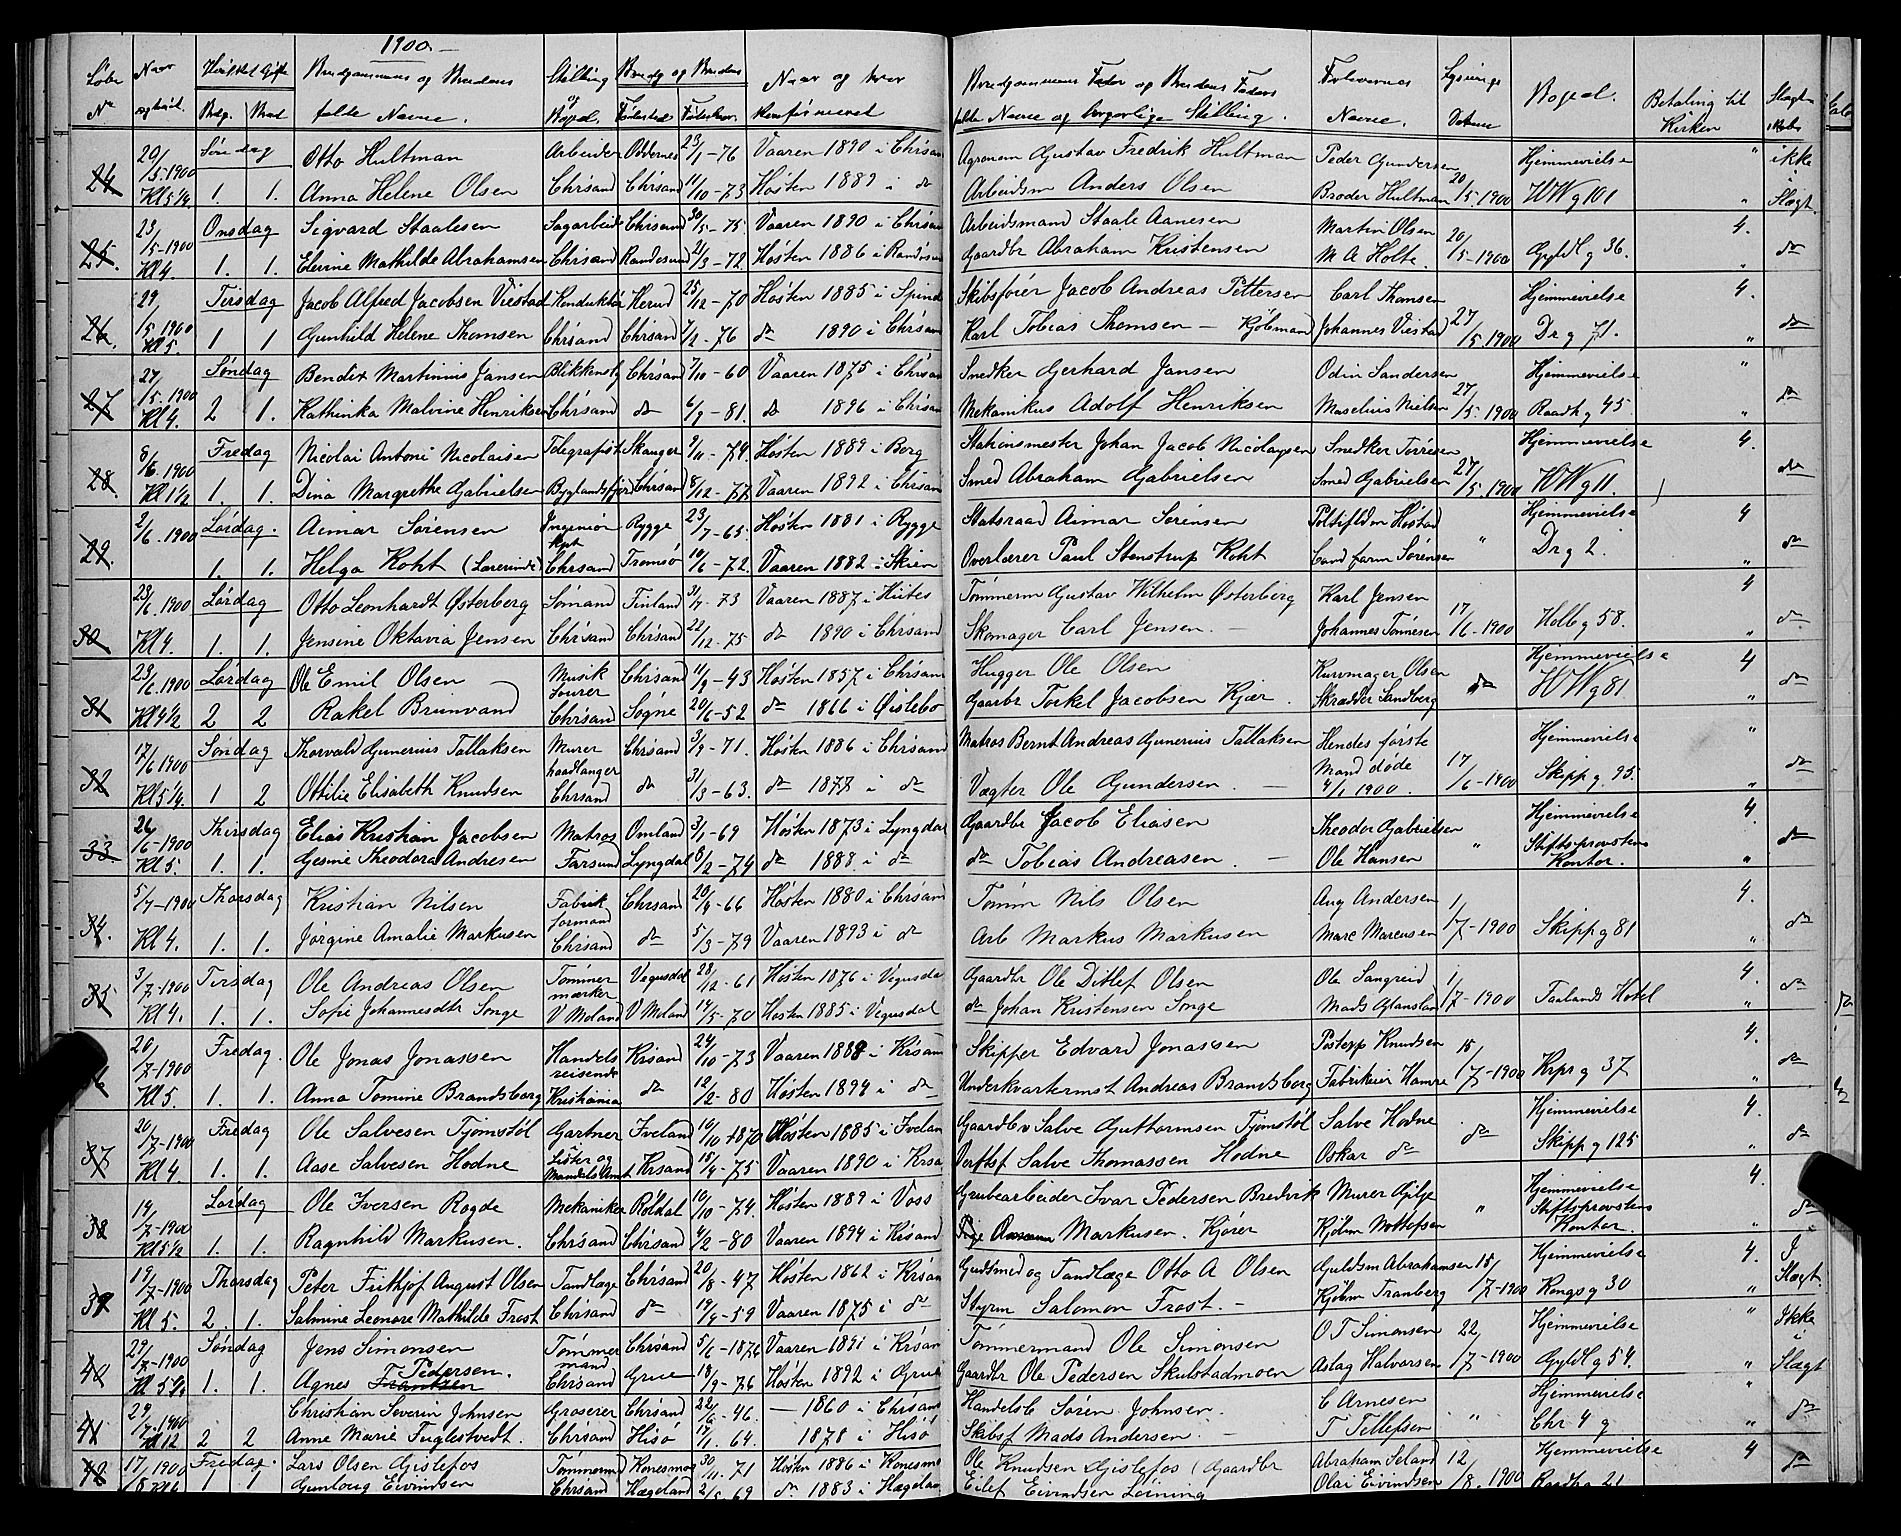 1900.
Løbe Naar Hvilket Gifte Brudgommens og Brudens Stilling Brudg og Brudens Naar og hvor Brudgommens Fader og Brudens Faders Forlovernes Lysnings Bopæl. Betaling til Slægt
No ægtviet. Brdg. Brud fulde Navne. og Bopel. Fødested Fødselsaar. konfirmeret fulde Navne og borgerlige Stilling. Navne. Datum Kirken
20/5-1900 Søndag Otto Hultman Arbeider Oddernes 23/1-76 Vaaren 1890 i Chrsand Agronom Gustav Fredrik Hultman Peder Gundersen Hjemmevielse " ikke
24. Kl 5¼ 1. 1. Anna Helene Olsen Chrsand Chrsand 11/10-73 Høsten 1889 i do Arbeidsm Anders Olsen Broder Hultman 20/5-1900 WWg 101 " i Slægt
23/5-1900 Onsdag Sigvard Staalesen Sagarbeid Chrsand 30/5-75 Vaaren 1890 i Chrsand Arbeidsmand Staale Aanesen Martin Olsen 4.
25. Kl 4. 1. 1. Elerine Mathilde Abrahamsen Chrsand Randesund 21/3-72. Høsten 1886 i Randøsund Gaardbr Abraham Kristensen M A Holte 20/5-1900 Gyldl g 36. " do
29/5-1900 Tirsdag Jacob Alfred Jacobsen Viestad Konduktør Herad 25/12-70 Høsten 1885 i Spind Skibsfører Jacob Andreas Pettersen Carl Thomsen Hjemmevielse 4.
26. Kl 5. 1 1 Gunhild Helene Thomsen Chrsand Chrsand 7/2-76 do 1890 i Chrsand Karl Tobias Thomsen - Kjøbmand Johannes Viestad 27/5-1900 Dr g 71. " do
27/5-1900 Søndag Bendix Martinius Jansen Blikkensl Chrsand 7/10-60 Vaaren 1875 i Chrsand Snedker Gerhard Jansen Odin Sandersen Hjemmevielse
27. Kl 4. 2 1. Kathinka Malvine Henriksen Chrsand do 6/9-81. do 1896 i Chrsand Mekanikus Adolf Henriksen Maselius Nielsen 27/5-1900 Raadh g 45 " do
8/6-1900 Fredag Nicolai Antoni Nicolaisen Telegrafist Skanger 9/11-74. Høsten 1889 i Borg Stationsmester Johan Jacob Nicolaysen Snedker Torresen Hjemmevielse 4.
28. Kl 1½ 1. 1. Dina Margrethe Gabrielsen Byglandsfjord Chrsand 8/12-77 Vaaren 1892 i Chrsand Smed Abraham Gabrielsen Smed Gabrielsen 27/5-1900 WWg 11. do
2/6-1900 Lørdag. Aimar Sørensen Ingeniør Kpt Rygge 23/7-65. Høsten 1881 i Rygge Statsraad Aimar Sørensen Politifldm Høstad Hjemmevielse 4
29. 1. 1. Helga Koht (Lærerinde) Chrsand Tromsø 10/6-72. Vaaren 1882 i Skien Overlærer Paul Stenstrup Koht Cand farm Sørensen " Dr g 2. " do
23/6-1900 Lørdag Otto Leonhardt Østerberg Sømand Finland 31/7-73 Vaaren 1887 i Hiitis Tømmerm Gustav Wilhelm Østerberg Karl Jensen 4
30. Kl 4. 1. 1. Jensine Oktavia Jensen Chrsand Chrsand 22/12-75 do 1890 i Chrsand Skomager Carl Jensen. - Johannes Tønnesen 17/6-1900 Holb g 58. " do
23/6-1900 Lørdag Ole Emil Olsen Musik Chrsand 11/9-43 Høsten 1857 i Chrsand Hugger Ole Olsen Kurvmager Olsen Hjemmevielse 4
31 Kl 4½ 2 2 Rakel Brunvand Chrsand Søgne 20/6-52 do 1866 i Øislebø Gaardbr Torkel Jacobsen Kjær. Skrædder Sandberg do WWg 81 " do
17/6 1900 Søndag Thorvald Gunerius Tallaksen Murer Chrsand 3/9-71. Høsten 1886 i Chrsand Matros Bernt Andreas Gunerius Tallaksen Hendes første Hjemmevielse "
32 Kl 5¼. 1 2 Ottilie Elisabeth Knudsen haandlanger Chrsand do 31/3-63. do 1877 i do Vægter Ole Gundersen. - Mand døde 4/1 1900. 17/6-1900 Skipp g. 95. " do
26/6-1900 Thirsdag Elias Kristian Jacobsen Matros Omland 3/1-69 Høsten 1873 i Lyngdal Gaardbr Jacob Eliasen Theodor Gabrielsen Hjemmevielse 4.
33 Kl 5. 1. 1. Gesine Theodora Andresen Farsund Lyngdal 8/2-74 do 1888. i do do Tobias Andreasen. - Ole Hansen " Stiftsprovstens Kontor. " do
5/7-1900 Thorsdag Kristian Nilsen Fabrik Chrsand 20/9-66 Høsten 1880 i Chrsand Tømm Nils Olsen Aug Andersen 4.
34. Kl 4. 1. 1. Jørgine Amalie Markusen formand Chrsand do 5/3-79 Vaaren 1893 i do Arb Markus Markusen Marc Marcusen 1/7-1900 Skipp g 81 " do
3/7-1900 Tirsdag Ole Andreas Olsen Tømmer Vegusdal 28/12-61 Høsten 1876 i Vegusdal Gaardbr Ole Ditlef Olsen Ole Sangreid 4.
35 Kl 4. 1. 1. Sofie Johannesdtr Songe mærker V Moland V Moland 14/5-70 Høsten 1885 i Vegusdal do Johan Kristensen Songe Mads Glansland 1/7-1900 Taalands Hotel " do
20/7-1900 Fredag. Ole Jonas Jonassen Handels Krsand 24/10-73 Vaaren 1888 i Krsand Skipper Edvard Jonassen Postexp Knudsen 4.
Kl 5. 1. 1. Anna Tomine Brandsborg reisende Kristiania do 12/2-80 Høsten 1894 i do Underkvartermst Andreas Brandsborg Fabrikeier Hamre 15/7-1900 Krpr g 37 " do
20/7-1900 Fredag Ole Salvesen Tjomstøl Gartner Iveland 10/10 1870 Høsten 1885 i Iveland Gaardbr Salve Guttormsen Tjomstøl Salve Hodne Hjemmevielse 4.
37 Kl 4 1. 1. Aase Salvesen Hodne Lister og Mandals Amt Krsand 15/4-75 Vaaren 1890 i Krsa Verftsf Salve Thomassen Hodne Oskar do do Skipp g 125 " do
14/7-1900 Lørdag Ole Iversen Rogde Mekaniker Røldal 10/10-74. Høsten 1889 i Voss Grubearbeider Ivar Pedersen Bredvik Murer Gilje Hjemmevielse 4.
38 Kl 5½ 1. 1. Ragnhild Markusen. Chrsand Chrsand 4/2-80 Vaaren 1894 i Krsand Markusen. Kjører Kjøbm Nottofsen " Stiftsprovstens Kontor. " do
19/7-1900 Thorsdag Peter Frithjof August Olsen Tandlæge Chrsand 20/8-47 Høsten 1862 i Krsand Guldsmed og Tandlæge Otto A Olsen Guldsm Abrahamsen Hjemmevielse 4. I
39 Kl 5. 2. 1. Salmine Leonore Mathilde Frost Chrsand do 19/9-59 Vaaren 1875 i do Styrm Salomon Frost. - Kjøbm Tranberg 15/7-1900 Kongsg 30 " Slægt
29/7-1900 Søndag Jens Simonsen Tømmer Chrsand 5/6-1876 Vaaren 1891 i Krsand Tømmermand Ole Simonsen O T Simonsen Hjemmevielse " Ikke i
40 Kl 5¼. 1. 1. Agnes Frantzen Pedersen. mand Chrsand Grue 18/9-76 Høsten 1892 i Grue Gaardbr Ole Pedersen Skulstadmoen Aslag Halvorsen 22/7-1900 Gyldl g 54. " Slægt
29/7-1900 Christian Severin Johnsen Groserer Chrsand 22/6-46. - 1860 i Chrsand Handelsb Søren Johnsen. C Arnesen Hjemmevielse "
41 Kl 12 2 2 Anne Marie Fuglestvedt. Chrsand Hisø 17/1. 64. 1878 i Hisø Skibsf Mads Andersen. - T Tellefsen " Chr 4 g " do
17/8 1900 Fredag. Lars Olsen Gislefos Tømmermd Konesmo 30/11-71 Høsten 1886 i Konesmo Ole Knudsen Gislefos (Gaardbr Abraham Seland Hjemmevielse 4
42 1 1 Gunloug Eivindsen Chrsand Hægeland do 1883 i Hægeland Eilef Eivindsen Leining Olai Eivindsen 12/8. 1900 Raadhg 21 do